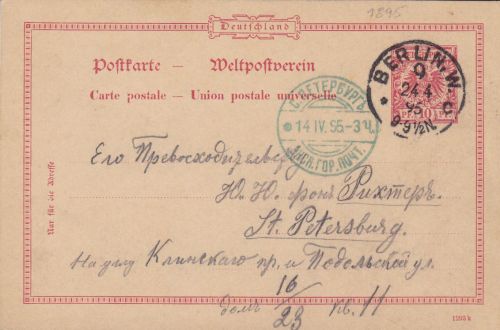 1895
Deutschland
Postkarte — Weltpostverein
Carte postale — Union postale universelle
BERLIN. W.
9
24 4
95
8-9½N.
* C
С.ПЕТЕРБУРГЪ
14 IV. 95-3Ч.
ГОР. ПОЧТ.
Его Превосходительству
Ю. Ю. фонъ Рихтеръ.
St. Petersburg.
На углу Клинскаго пр. и Подольской ул.
домъ 16/23 кв. 11
Nur für die Adresse
1295 k